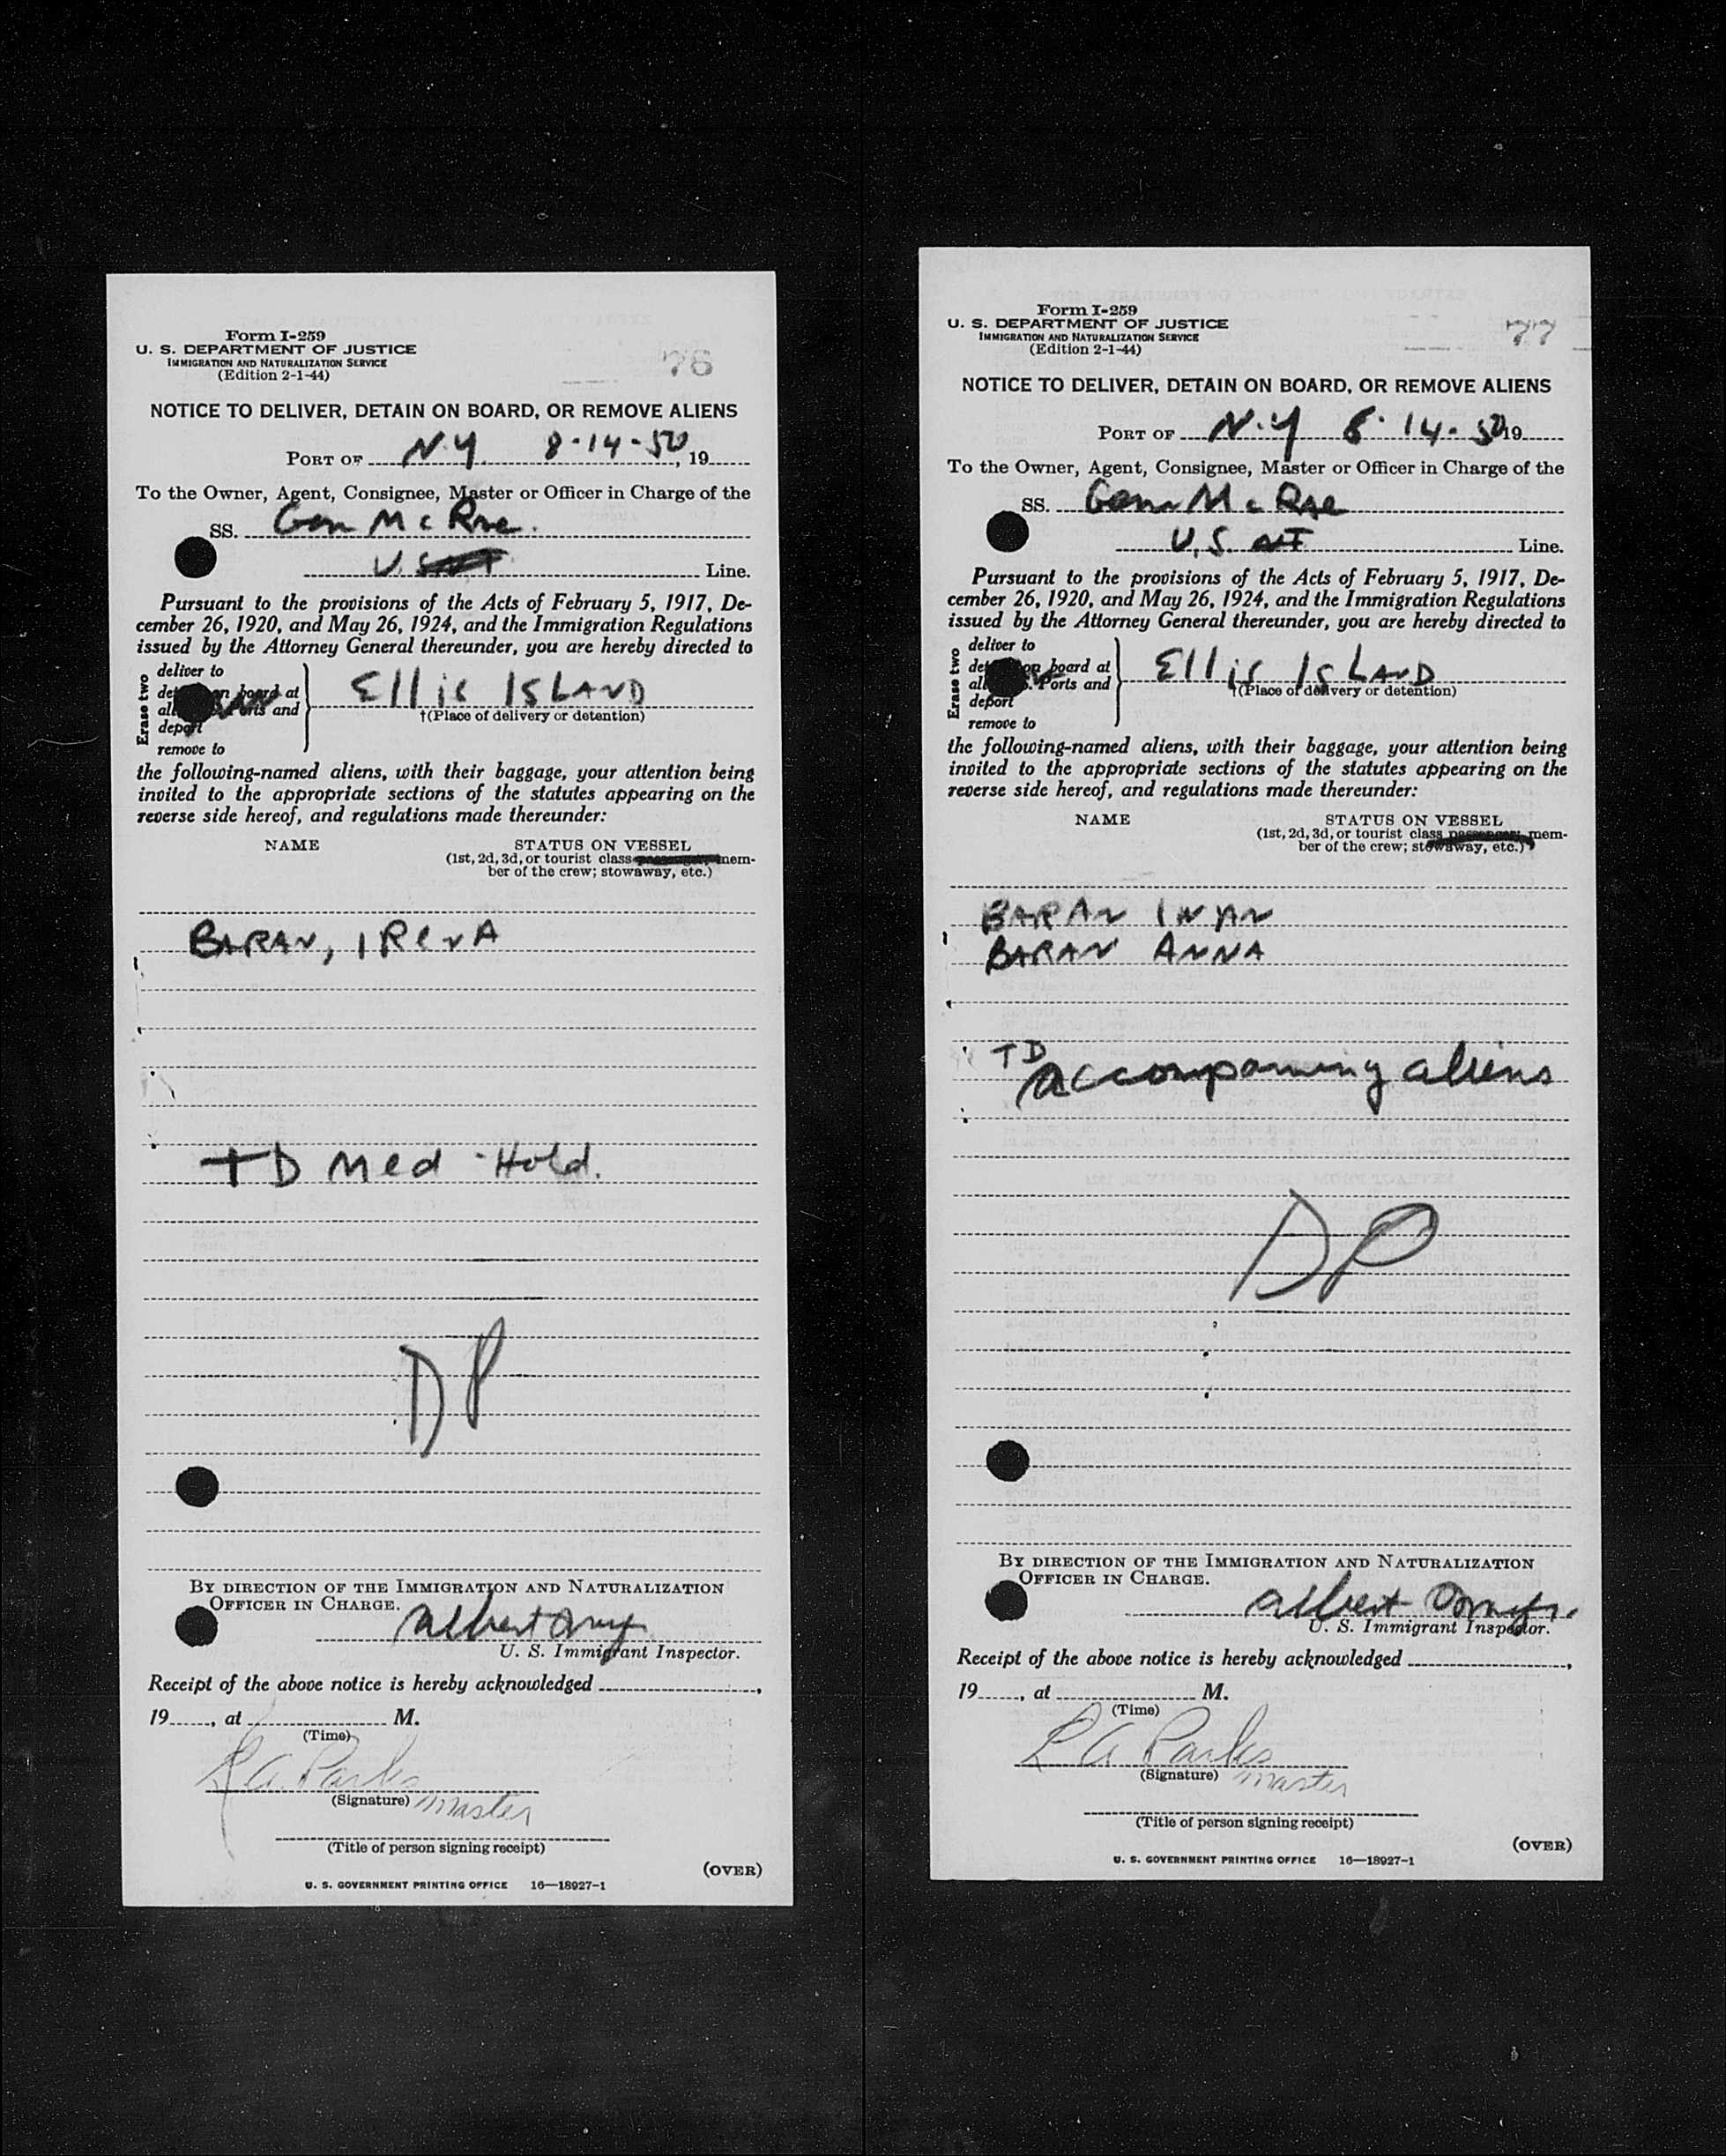 Form I-259
U. S. DEPARTMENT OF JUSTICE
IMMIGRATION AND NATURALIZATION SERVICE
(Edition 2-1-44)
76
NOTICE TO DELIVER, DETAIN ON BOARD, OR REMOVE ALIENS
PORT OF N.Y. 8-14-50, 19
To the Owner, Agent, Consignee, Master or Officer in Charge of the
SS. Gen McRae.
U.S. Line.
Pursuant to the provisions of the Acts of February 5, 1917, De-
cember 26, 1920, and May 26, 1924, and the Immigration Regulations
issued by the Attorney General thereunder, you are hereby directed to
Erase two
deliver to
board at
and
deport
remove to
Ellis ISLAND
†(Place of delivery or detention)
the following-named aliens, with their baggage, your attention being
invited to the appropriate sections of the statutes appearing on the
reverse side hereof, and regulations made thereunder:
NAME STATUS ON VESSEL
(1st, 2d, 3d, or tourist class mem-
ber of the crew; stowaway, etc.)
BARAN, IRENA
TD Med-Hold.
DP
BY DIRECTION OF THE IMMIGRATION AND NATURALIZATION
OFFICER IN CHARGE.
Albert
U. S. Immigrant Inspector.
Receipt of the above notice is hereby acknowledged ,
19 , at M.
(Time)
L A. Parks
(Signature) Master
(Title of person signing receipt)
(OVER)
U. S. GOVERNMENT PRINTING OFFICE 16—18927-1
Form I-259
U. S. DEPARTMENT OF JUSTICE
IMMIGRATION AND NATURALIZATION SERVICE
(Edition 2-1-44)
77
NOTICE TO DELIVER, DETAIN ON BOARD, OR REMOVE ALIENS
PORT OF N.Y 8-14-50 19
To the Owner, Agent, Consignee, Master or Officer in Charge of the
SS. Gen McRae
U.S. Line.
Pursuant to the provisions of the Acts of February 5, 1917, De-
cember 26, 1920, and May 26, 1924, and the Immigration Regulations
issued by the Attorney General thereunder, you are hereby directed to
Erase two
deliver to
board at
Ports and
deport
remove to
Ellis ISLAND
†(Place of delivery or detention)
the following-named aliens, with their baggage, your attention being
invited to the appropriate sections of the statutes appearing on the
reverse side hereof, and regulations made thereunder:
NAME STATUS ON VESSEL
(1st, 2d, 3d, or tourist class passenger; mem-
ber of the crew; stowaway, etc.)
BARAN
BARAN ANNA
TD
accompaning aliens
DP
BY DIRECTION OF THE IMMIGRATION AND NATURALIZATION
OFFICER IN CHARGE.
Albert
U. S. Immigrant Inspector.
Receipt of the above notice is hereby acknowledged ,
19 , at M.
(Time)
L A Parks
(Signature) Master
(Title of person signing receipt)
(OVER)
U. S. GOVERNMENT PRINTING OFFICE 16—18927-1